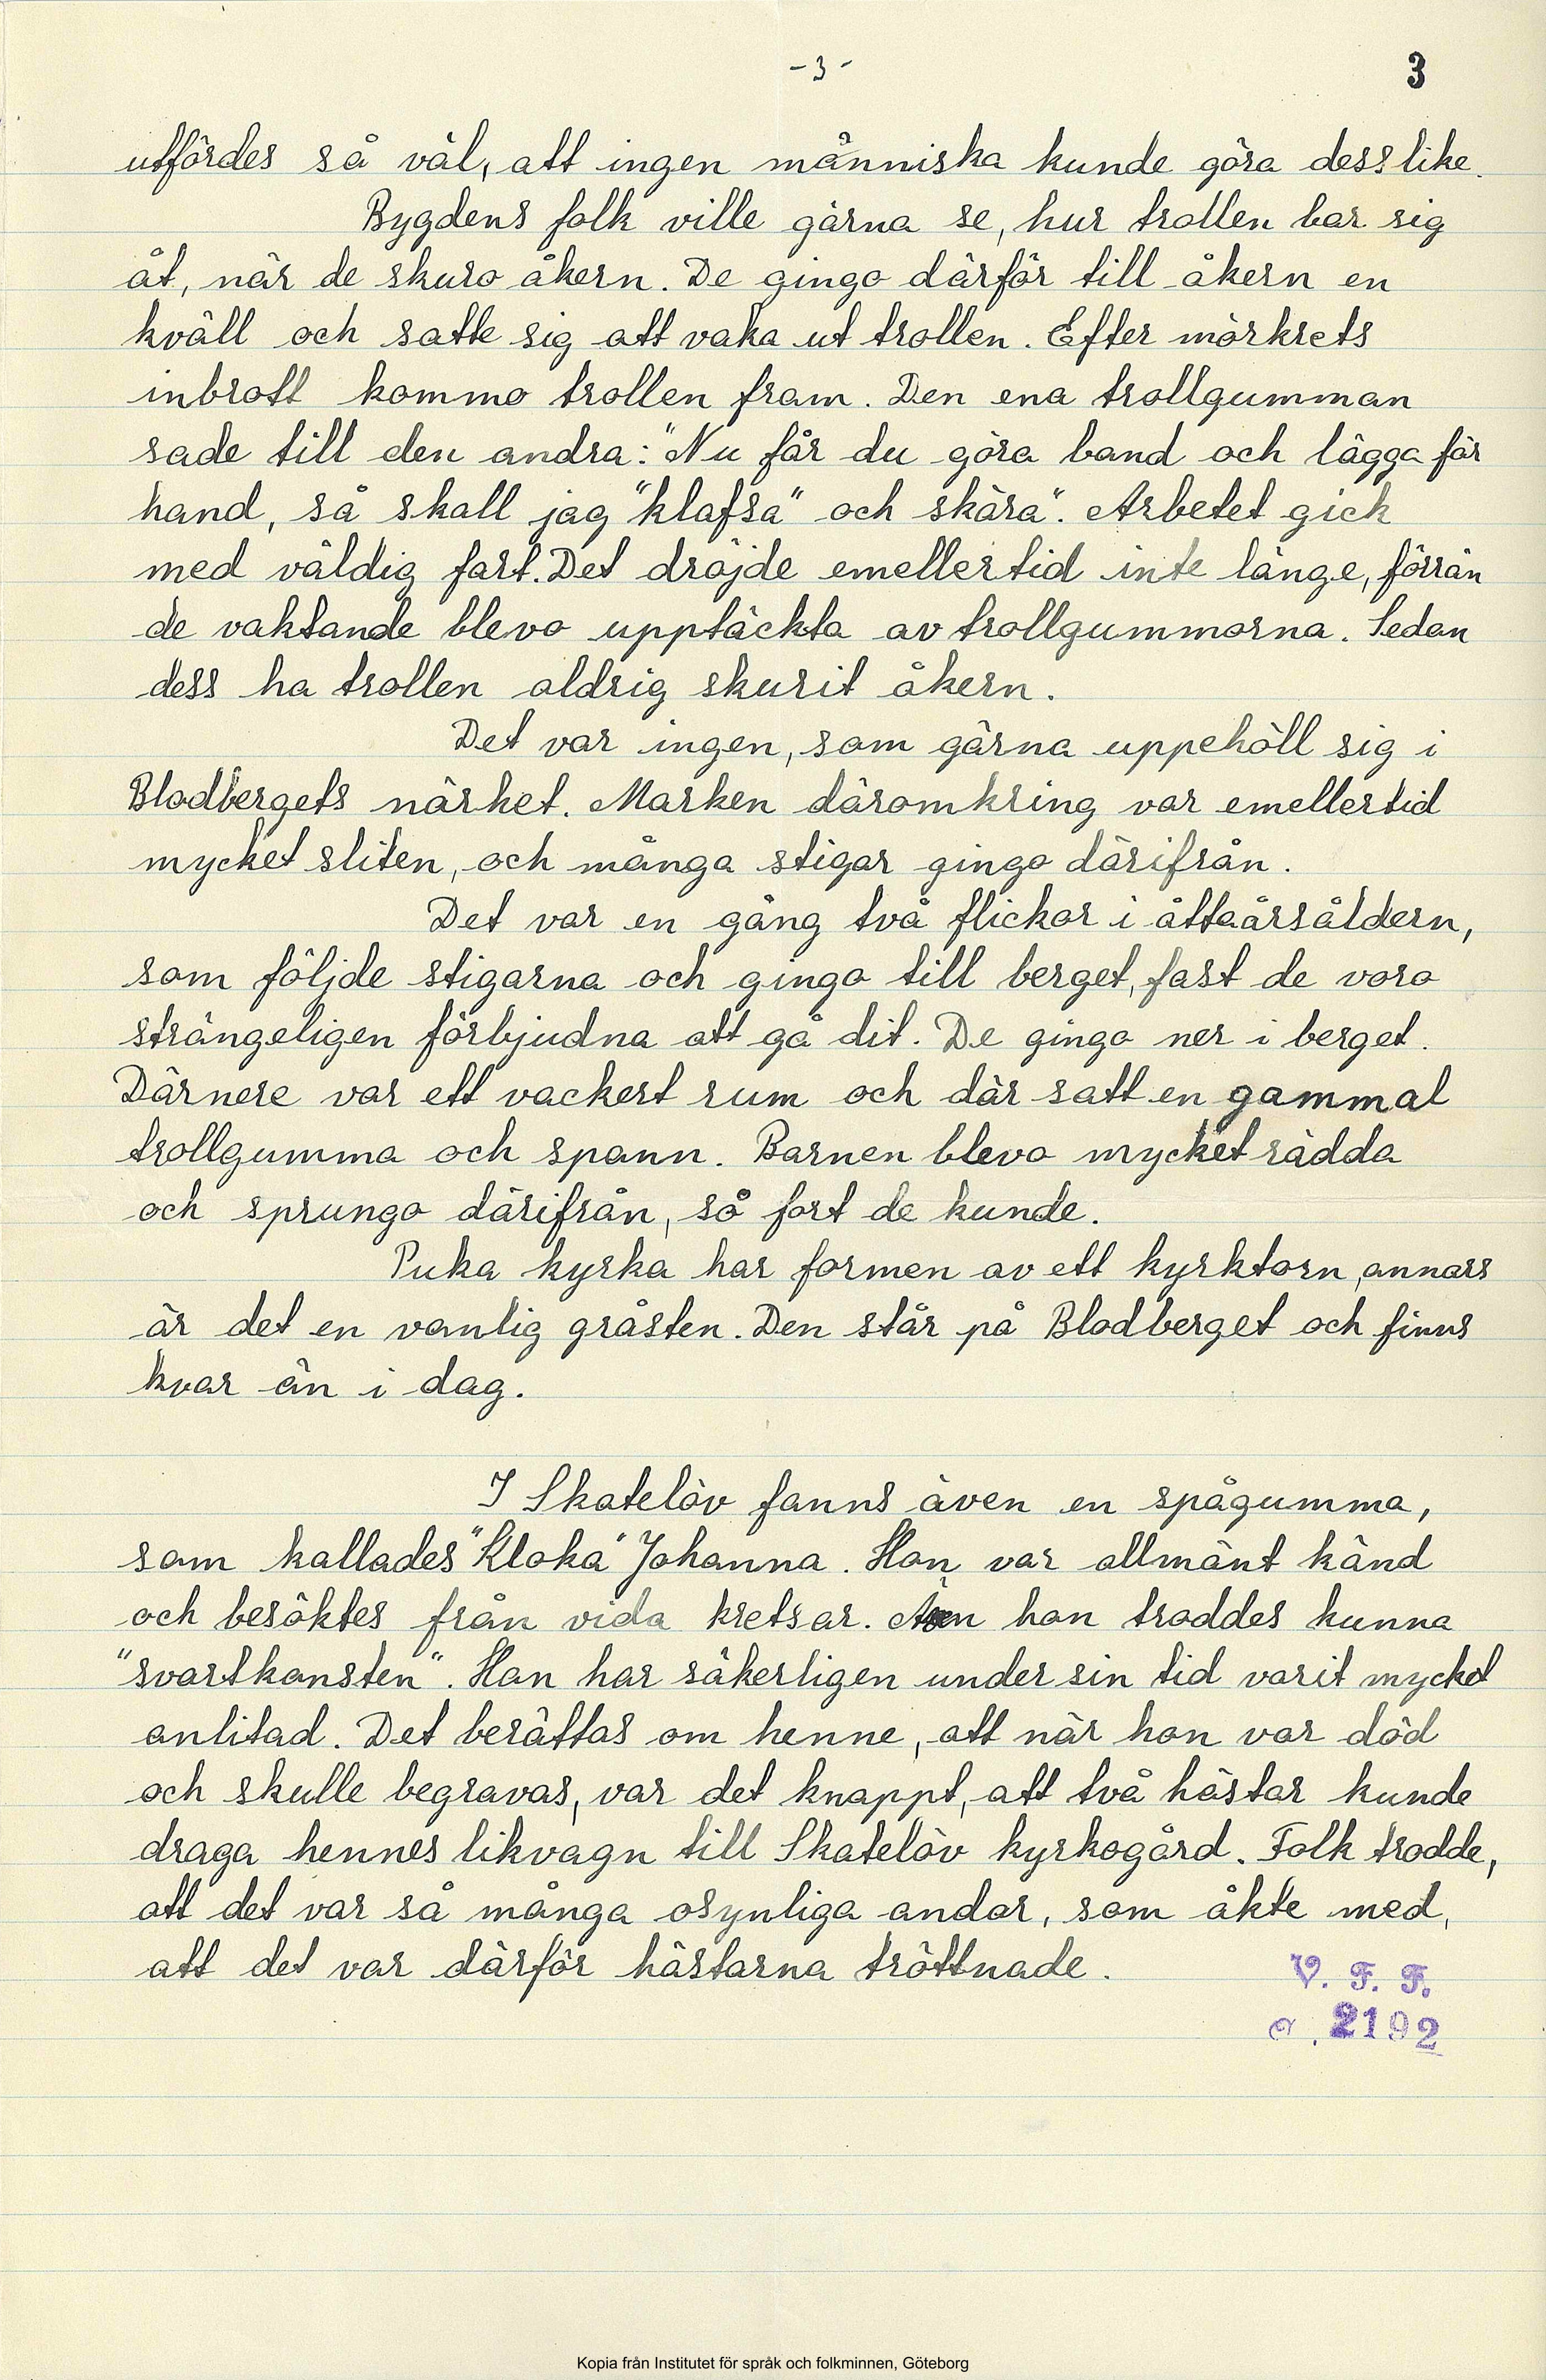 - 3 -
3
utfördes så väl, att ingen människa kunde göra dess like.
Bygdens folk ville gärna se, hur trollen bar sig
åt, när de skuro åkern. De gingo därför till åkern en
kväll och satte sig att vaka ut trollen. Efter mörkrets
inbrott kommo trollen fram. Den ena trollgumman
sade till den andra: "Nu får du göra band och lägga för
hand, så skall jag "klafsa" och skära". Arbetet gick
med väldig fart. Det dröjde emellertid inte länge, förrän
de vaktande blevo upptäckta av trollgummorna. Sedan
dess ha trollen aldrig skurit åkern.
Det var ingen, som gärna uppehöll sig i
Blodbergets närhet. Marken däromkring var emellertid
mycket sliten, och många stigar gingo därifrån.
Det var en gång två flickor i åttaårsåldern,
som följde stigarna och gingo till berget, fast de voro
strängeligen förbjudna att gå dit. De gingo ner i berget.
Därnere var ett vackert rum och där satt en gammal
trollgumma och spann. Barnen blevo mycket rädda
och sprungo därifrån, så fort de kunde.
Puka kyrka har formen av ett kyrktorn, annars
är det en vanlig gråsten. Den står på Blodberget och finns
kvar än i dag.
I Skatelöv fanns även en spågumma,
som kallades "Kloka" Johanna. Hon var allmänt känd
och besöktes från vida kretsar. Även hon troddes kunna
"svartkonsten". Hon har säkerligen under sin tid varit mycket
anlitad. Det berättas om henne, att när hon var död
och skulle begravas, var det knappt, att två hästar kunde
draga hennes likvagn till Skatelöv kyrkogård. Folk trodde,
att det var så många osynliga andar, som åkte med,
att det var därför hästarna tröttnade.
V. F. F.
2192
Kopia från Institutet för språk och folkminnen, Göteborg